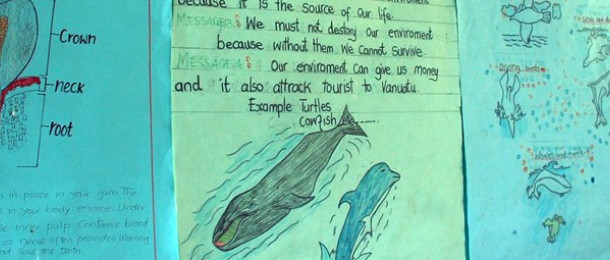 Crown
neck
root
in place in your gum. The
in your body-enamel. Under
inner pulp contains blood
or nerve often provides warning
save the teeth.
because it is the source of our life.
MESSAGE: We must not destroy our enviroment
because without them we cannot survive.
MESSAGE: Our enviroment can give us money
and it also attrack tourist to Vanuatu.
Example Turtles
Cowfish
Diving